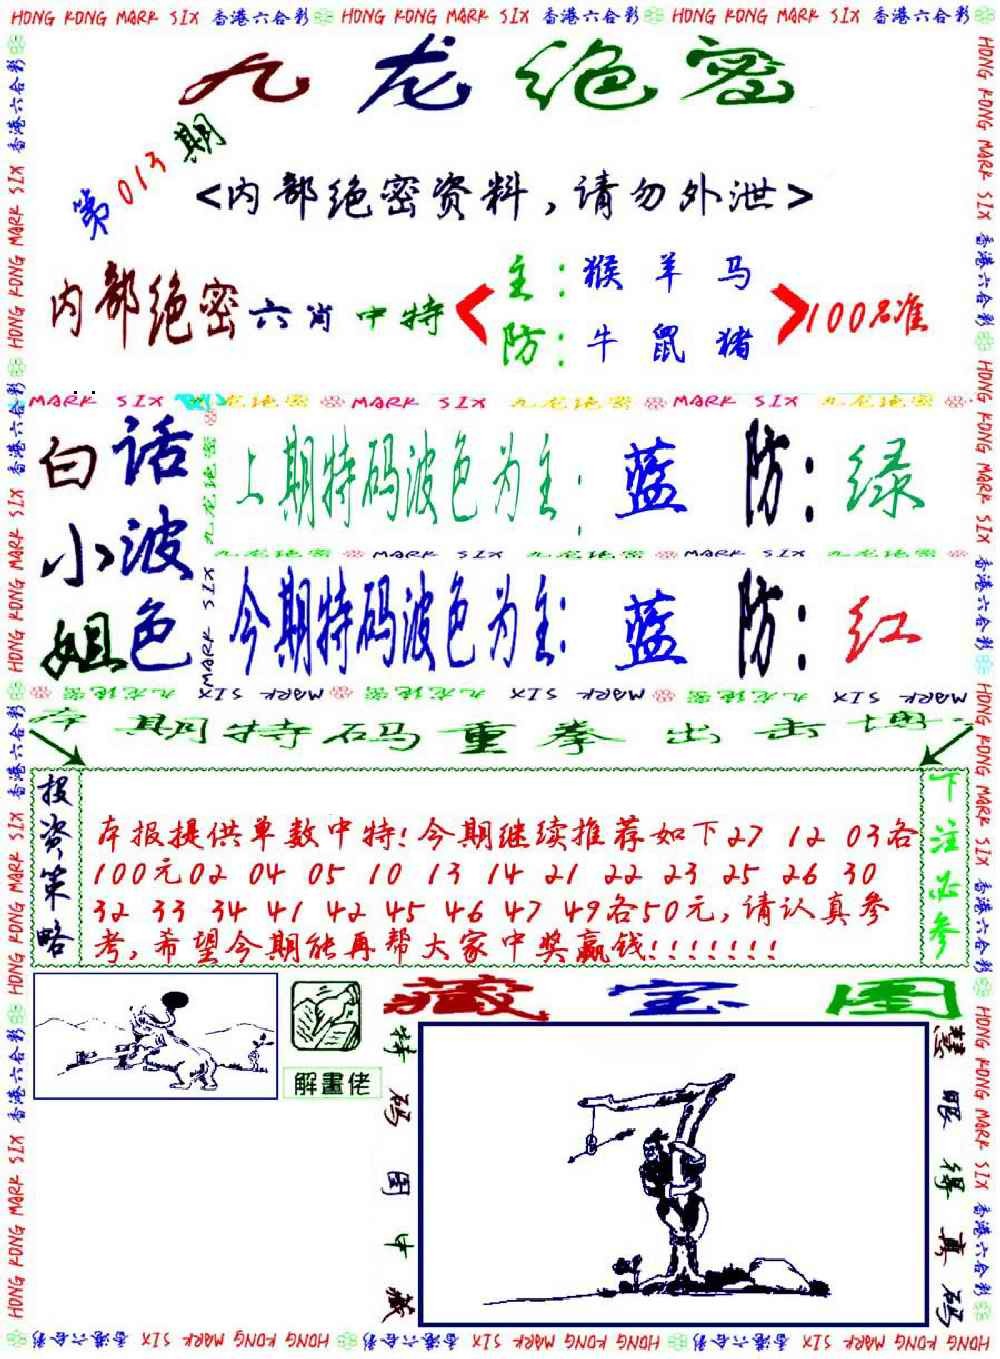 HONG KONG MARK SIX 香港六合彩 HONG KONG MARK SIX 香港六合彩 HONG KONG MARK SIX 香港六合彩
九龙绝密
第013期
<内部绝密资料,请勿外泄>
内部绝密六肖中特
主:猴羊马
防:牛鼠猪
100%准
MARK SIX 九龙绝密 MARK SIX 九龙绝密 MARK SIX 九龙绝密
白小姐
话波色
上期特码波色为主:蓝 防:绿
九龙绝密 MARK SIX 九龙绝密 MARK SIX 九龙绝密
今期特码波色为主:蓝 防:红
九龙绝密 MARK SIX 九龙绝密 MARK SIX 九龙绝密 MARK SIX
期特码重拳出击
投资策略
本报提供单数中特!今期继续推荐如下27 12 03各
100元02 04 05 10 13 14 21 22 23 25 26 30
32 33 34 41 42 45 46 47 49各50元,请认真参
考,希望今期能再帮大家中奖赢钱!!!!!!!
下注必参
解畫佬
藏宝图
特码图中藏
慧眼得真码
香港六合彩 HONG KONG MARK SIX 香港六合彩 HONG KONG MARK SIX 香港六合彩 HONG KONG MARK SIX